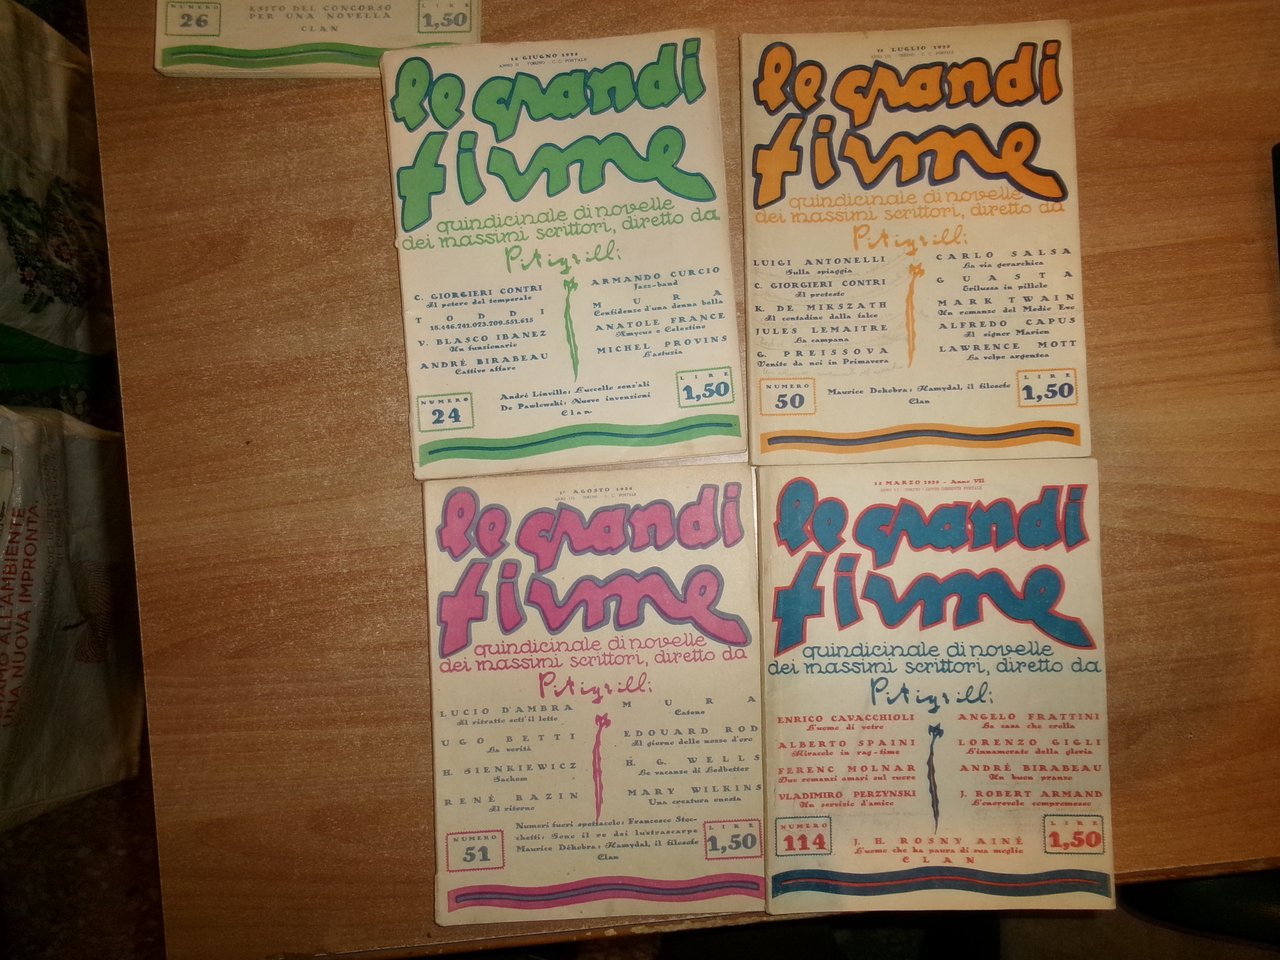 NUMERO
26
ESITO DEL CONCORSO
PER UNA NOVELLA
CLAN
LIRE
1,50
15 GIUGNO 1925
ANNO II TORINO C. C. POSTALE
le grandi
firme
quindicinale di novelle
dei massimi scrittori, diretto da
Pitigrilli:
C. GIORGIERI CONTRI
Il potere del temporale
TODDI
18.446.241.073.209.551.615
V. BLASCO IBANEZ
Un funzionario
ANDRÉ BIRABEAU
Cattivo affare
ARMANDO CURCIO
Jazz-band
MURA
Confidenze d'una donna bella
ANATOLE FRANCE
Amycus e Celestino
MICHEL PROVINS
L'astuzia
André Linville: L'uccello senz'ali
De Pawlowski: Nuove invenzioni
Clan
NUMERO
24
LIRE
1,50
15 LUGLIO 1926
ANNO III TORINO C. C. POSTALE
le grandi
firme
quindicinale di novelle
dei massimi scrittori, diretto da
Pitigrilli:
LUIGI ANTONELLI
Sulla spiaggia
C. GIORGIERI CONTRI
Il pretesto
K. DE MIKSZATH
Il contadino dalla falce
JULES LEMAITRE
La campana
G. PREISSOVA
Venite da noi in Primavera
CARLO SALSA
La via gerarchica
GUASTA
Trilussa in pillole
MARK TWAIN
Un romanzo del Medio Evo
ALFREDO CAPUS
Il signor Marion
LAWRENCE MOTT
La volpe argentea
Maurice Dekobra: Hamydal, il filosofo
Clan
NUMERO
50
LIRE
1,50
1° AGOSTO 1926
ANNO III TORINO C. C. POSTALE
le grandi
firme
quindicinale di novelle
dei massimi scrittori, diretto da
Pitigrilli:
LUCIO D'AMBRA
Il ritratto sott'il letto
UGO BETTI
La verità
H. SIENKIEWICZ
Sachem
RENÉ BAZIN
Il ritorno
MURA
Catene
EDOUARD ROD
Il giorno delle nozze d'oro
H. G. WELLS
Le vacanze di Ledbetter
MARY WILKINS
Una creatura onesta
Numeri fuori spettacolo: Francesco Stoc-
chetti: Sono il re dei lustrascarpe
Maurice Dékobra: Hamydal, il filosofo
Clan
NUMERO
51
LIRE
1,50
15 MARZO 1929 - Anno VII
ANNO VI - TORINO - CONTO CORRENTE POSTALE
le grandi
firme
quindicinale di novelle
dei massimi scrittori, diretto da
Pitigrilli:
ENRICO CAVACCHIOLI
L'uomo di vetro
ALBERTO SPAINI
Miracolo in rag-time
FERENC MOLNAR
Due romanzi amari sul cuore
VLADIMIRO PERZYNSKI
Un servizio d'amico
ANGELO FRATTINI
La casa che crolla
LORENZO GIGLI
L'innamorato della gloria
ANDRÉ BIRABEAU
Un buon pranzo
J. ROBERT ARMAND
L'onorevole compromesso
J. H. ROSNY AINÉ
L'uomo che ha paura di sua moglie
CLAN
NUMERO
114
LIRE
1,50
ALL'AMBIENTE
UNA NUOVA IMPRONTA.